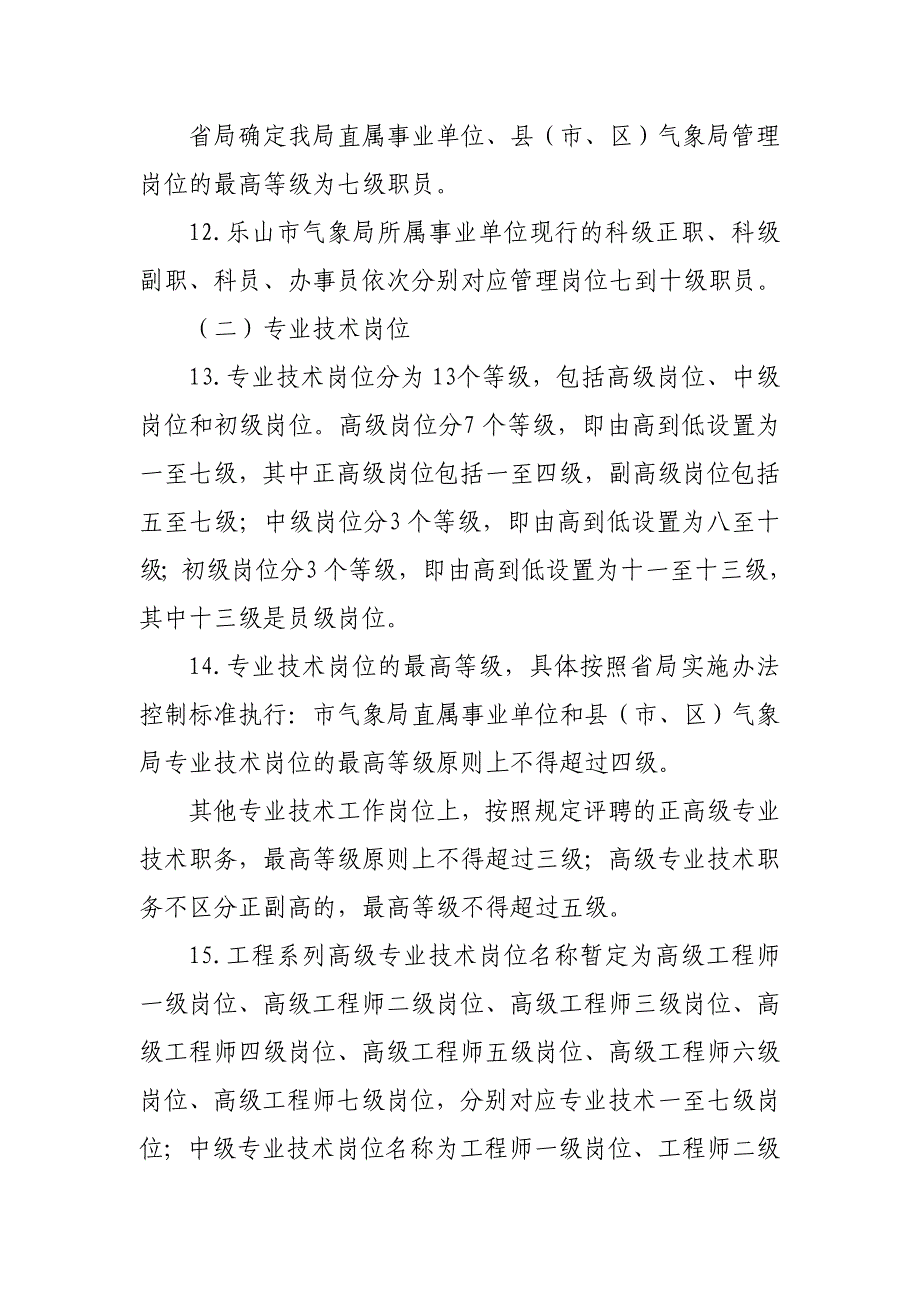 省局确定我局直属事业单位、县（市、区）气象局管理
岗位的最高等级为七级职员。
12.乐山市气象局所属事业单位现行的科级正职、科级
副职、科员、办事员依次分别对应管理岗位七到十级职员。
（二）专业技术岗位
13.专业技术岗位分为 13个等级，包括高级岗位、中级
岗位和初级岗位。高级岗位分7 个等级，即由高到低设置为
一至七级，其中正高级岗位包括一至四级，副高级岗位包括
五至七级；中级岗位分3 个等级，即由高到低设置为八至十
级；初级岗位分3 个等级，即由高到低设置为十一至十三级，
其中十三级是员级岗位。
14.专业技术岗位的最高等级，具体按照省局实施办法
控制标准执行：市气象局直属事业单位和县（市、区）气象
局专业技术岗位的最高等级原则上不得超过四级。
其他专业技术工作岗位上，按照规定评聘的正高级专业
技术职务，最高等级原则上不得超过三级；高级专业技术职
务不区分正副高的，最高等级不得超过五级。
15.工程系列高级专业技术岗位名称暂定为高级工程师
一级岗位、高级工程师二级岗位、高级工程师三级岗位、高
级工程师四级岗位、高级工程师五级岗位、高级工程师六级
岗位、高级工程师七级岗位，分别对应专业技术一至七级岗
位；中级专业技术岗位名称为工程师一级岗位、工程师二级